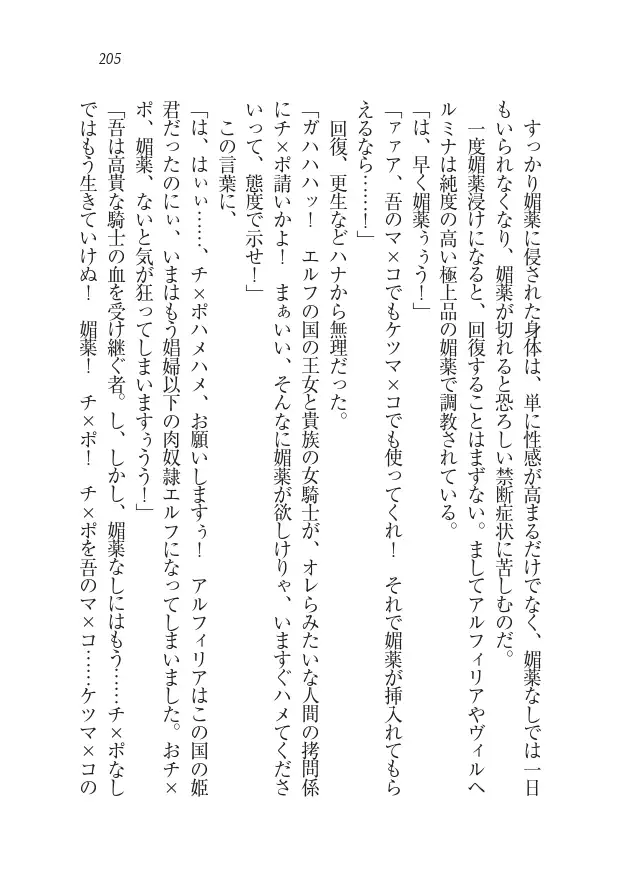 205
すっかり媚薬に侵された身体は、単に性感が高まるだけでなく、媚薬なしでは一日
もいられなくなり、媚薬が切れると恐ろしい禁断症状に苦しむのだ。
一度媚薬浸けになると、回復することはまずない。ましてアルフィリアやヴィルヘ
ルミナは純度の高い極上品の媚薬で調教されている。
「は、早く媚薬ぅぅう！」
「ァァア、吾のマ×コでもケツマ×コでも使ってくれ！　それで媚薬が挿入れてもら
えるなら……！」
回復、更生などハナから無理だった。
「ガハハハッ！　エルフの国の王女と貴族の女騎士が、オレらみたいな人間の拷問係
にチ×ポ請いかよ！　まぁいい、そんなに媚薬が欲しけりゃ、いますぐハメてくださ
いって、態度で示せ！」
この言葉に、
「は、はぃぃ……、チ×ポハメハメ、お願いしますぅ！　アルフィリアはこの国の姫
君だったのにぃ、いまはもう娼婦以下の肉奴隷エルフになってしまいました。おチ×
ポ、媚薬、ないと気が狂ってしまいますぅうう！」
「吾は高貴な騎士の血を受け継ぐ者。し、しかし、媚薬なしにはもう……チ×ポなし
ではもう生きていけぬ！　媚薬！　チ×ポ！　チ×ポを吾のマ×コ……ケツマ×コの